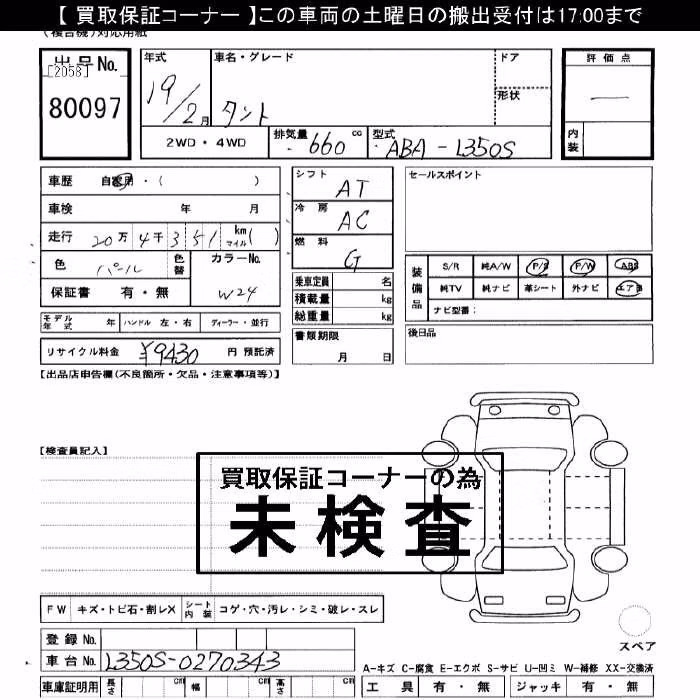 【 買取保証コーナー 】この車両の土曜日の搬出受付は17:00まで
(複合機)対応用紙
出品No.
[2058]
80097
年式
19/2月
車名・グレード
タント
ドア
形状
評価点
—
内装
2WD・4WD
排気量 660 cc
型式 ABA-L350S
車歴 自家用・( )
車検 年 月
走行 20万4千351 km マイル( )
色 パール
色替
カラーNo.
W24
保証書 有・無
シフト AT
冷房 AC
燃料 G
乗車定員 名
積載量 kg
総重量 kg
セールスポイント
装備品
S/R 純A/W P/S P/W ABS
純TV 純ナビ 革シート 外ナビ エアB
ナビ型番：
モデル年式 年 ハンドル 左・右 ディーラー・並行
書類期限
月 日
後日品
リサイクル料金 ¥9430 円 預託済
【出品店申告欄(不良箇所・欠品・注意事項等)】
【検査員記入】
買取保証コーナーの為
未検査
FW キズ・トビ石・割レX
シート内装 コゲ・穴・汚レ・シミ・破レ・スレ
登録No.
車台No. L350S-0270343
車庫証明用 長さ cm 幅 cm 高さ cm
スペア
A-キズ C-腐食 E-エクボ S-サビ U-凹ミ W-補修 XX-交換済
工具 有・無 ジャッキ 有・無